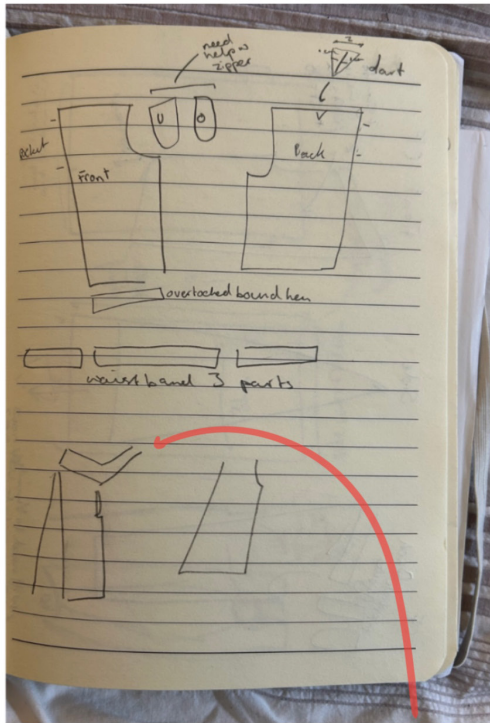 need
help w
zipper
2
dart
U
O
Front
Back
overlocked bound hem
waistband 3 parts